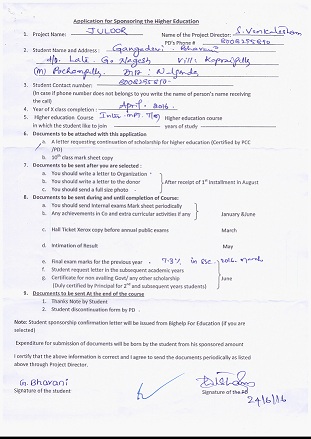 Application for Sponsoring the Higher Education
1. Project Name: JULOOR Name of the Project Director: S. Venkatesham
PD's Phone # 8008255810
2. Student Name and Address : Gangadevi Bhavani
d/o. Late. G. Nagesh Vill: Kaprajpally
(M) Pochampally DIST: Nalgonda
3. Student Contact number: 8008255810
(In case if phone number does not belongs to you write the name of person's name receiving
the call)
4. Year of X class completion : April - 2016.
5. Higher Education Course Inter. MPC. Higher education course
in which the student like to join years of study
6. Documents to be attached with this application
a. A letter requesting continuation of scholarship for higher education (Certified by PCC
/PD)
b. 10th class mark sheet copy
7. Documents to be sent after you are selected :
a. You should write a letter to Organization
b. You should write a letter to the donor After receipt of 1st installment in August
c. You should send a full size photo
8. Documents to be sent during and until completion of Course:
a. You should send Internal exams Mark sheet periodically
b. Any achievements in Co and extra curricular activities if any January &June
c. Hall Ticket Xerox copy before annual public exams March
d. Intimation of Result May
e. Final exam marks for the previous year - 7.3% in SSC. 2016 March
f. Student request letter in the subsequent academic years
g. Certificate for non availing Govt/ any other scholarship June
(Duly certified by Principal for 2nd and subsequent years students)
9. Documents to be sent At the end of the course
1. Thanks Note by Student
2. Student discontinuation form by PD
Note: Student sponsorship confirmation letter will be issued from Bighelp For Education (if you are
selected)
Expenditure for submission of documents will be born by the student from his sponsored amount
I certify that the above information is correct and I agree to send the documents periodically as listed
above through Project Director.
G. Bhavani
Signature of the student Signature of the PD
24/6/16